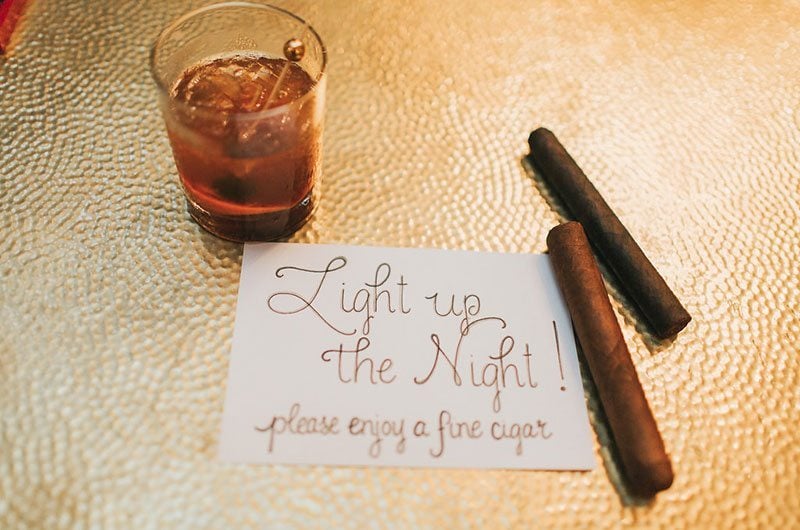 Light up
the Night!
please enjoy a fine cigar